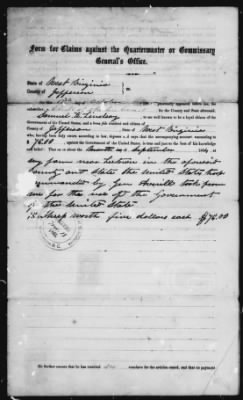 Form for Claims against the Quartermaster or Commissary
General's Office.
State of West Virginia
County of Jefferson
personally appeared before me, the
for the County and State aforesaid,
Samuel H. Lindsey, to me well known to be a loyal citizen of the
Government of the United States, and a bona fide resident and citizen of
County of Jefferson State of West Virginia
who having been duly sworn according to law, deposes and says that the accompanying account amounting to
$75.00, against the Government of the United States, is true and just to the best of his knowledge
and belief: That on or about the month of September 1864, at
my farm near in the aforesaid
County and State the United States troops
commanded by Gen Averill took from
me for the use of the Government
of the United States
15 sheep worth five dollars each $75.00
He further swears that he has received no vouchers for the articles named, and that no payment